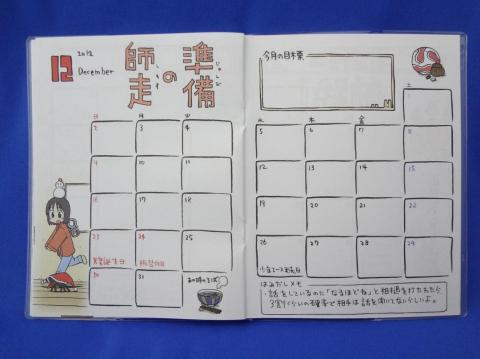 12
2012
December
師走の準備
しわす
じゅんび
今月の目標
日 月 火
水 木 金 土
1
2 3 4
5 6 7 8
9 10 11
12 13 14 15
16 17 18
19 20 21 22
23 24 25
天皇誕生日
振替休日
26 27 28 29
少年エース発売日
30 31
年の瀬のそば
はみだしメモ
・話をしているのに「なるほどね」と相槌を打たれたら
3割くらいの確率で相手は話を聞いてないらしいよ。